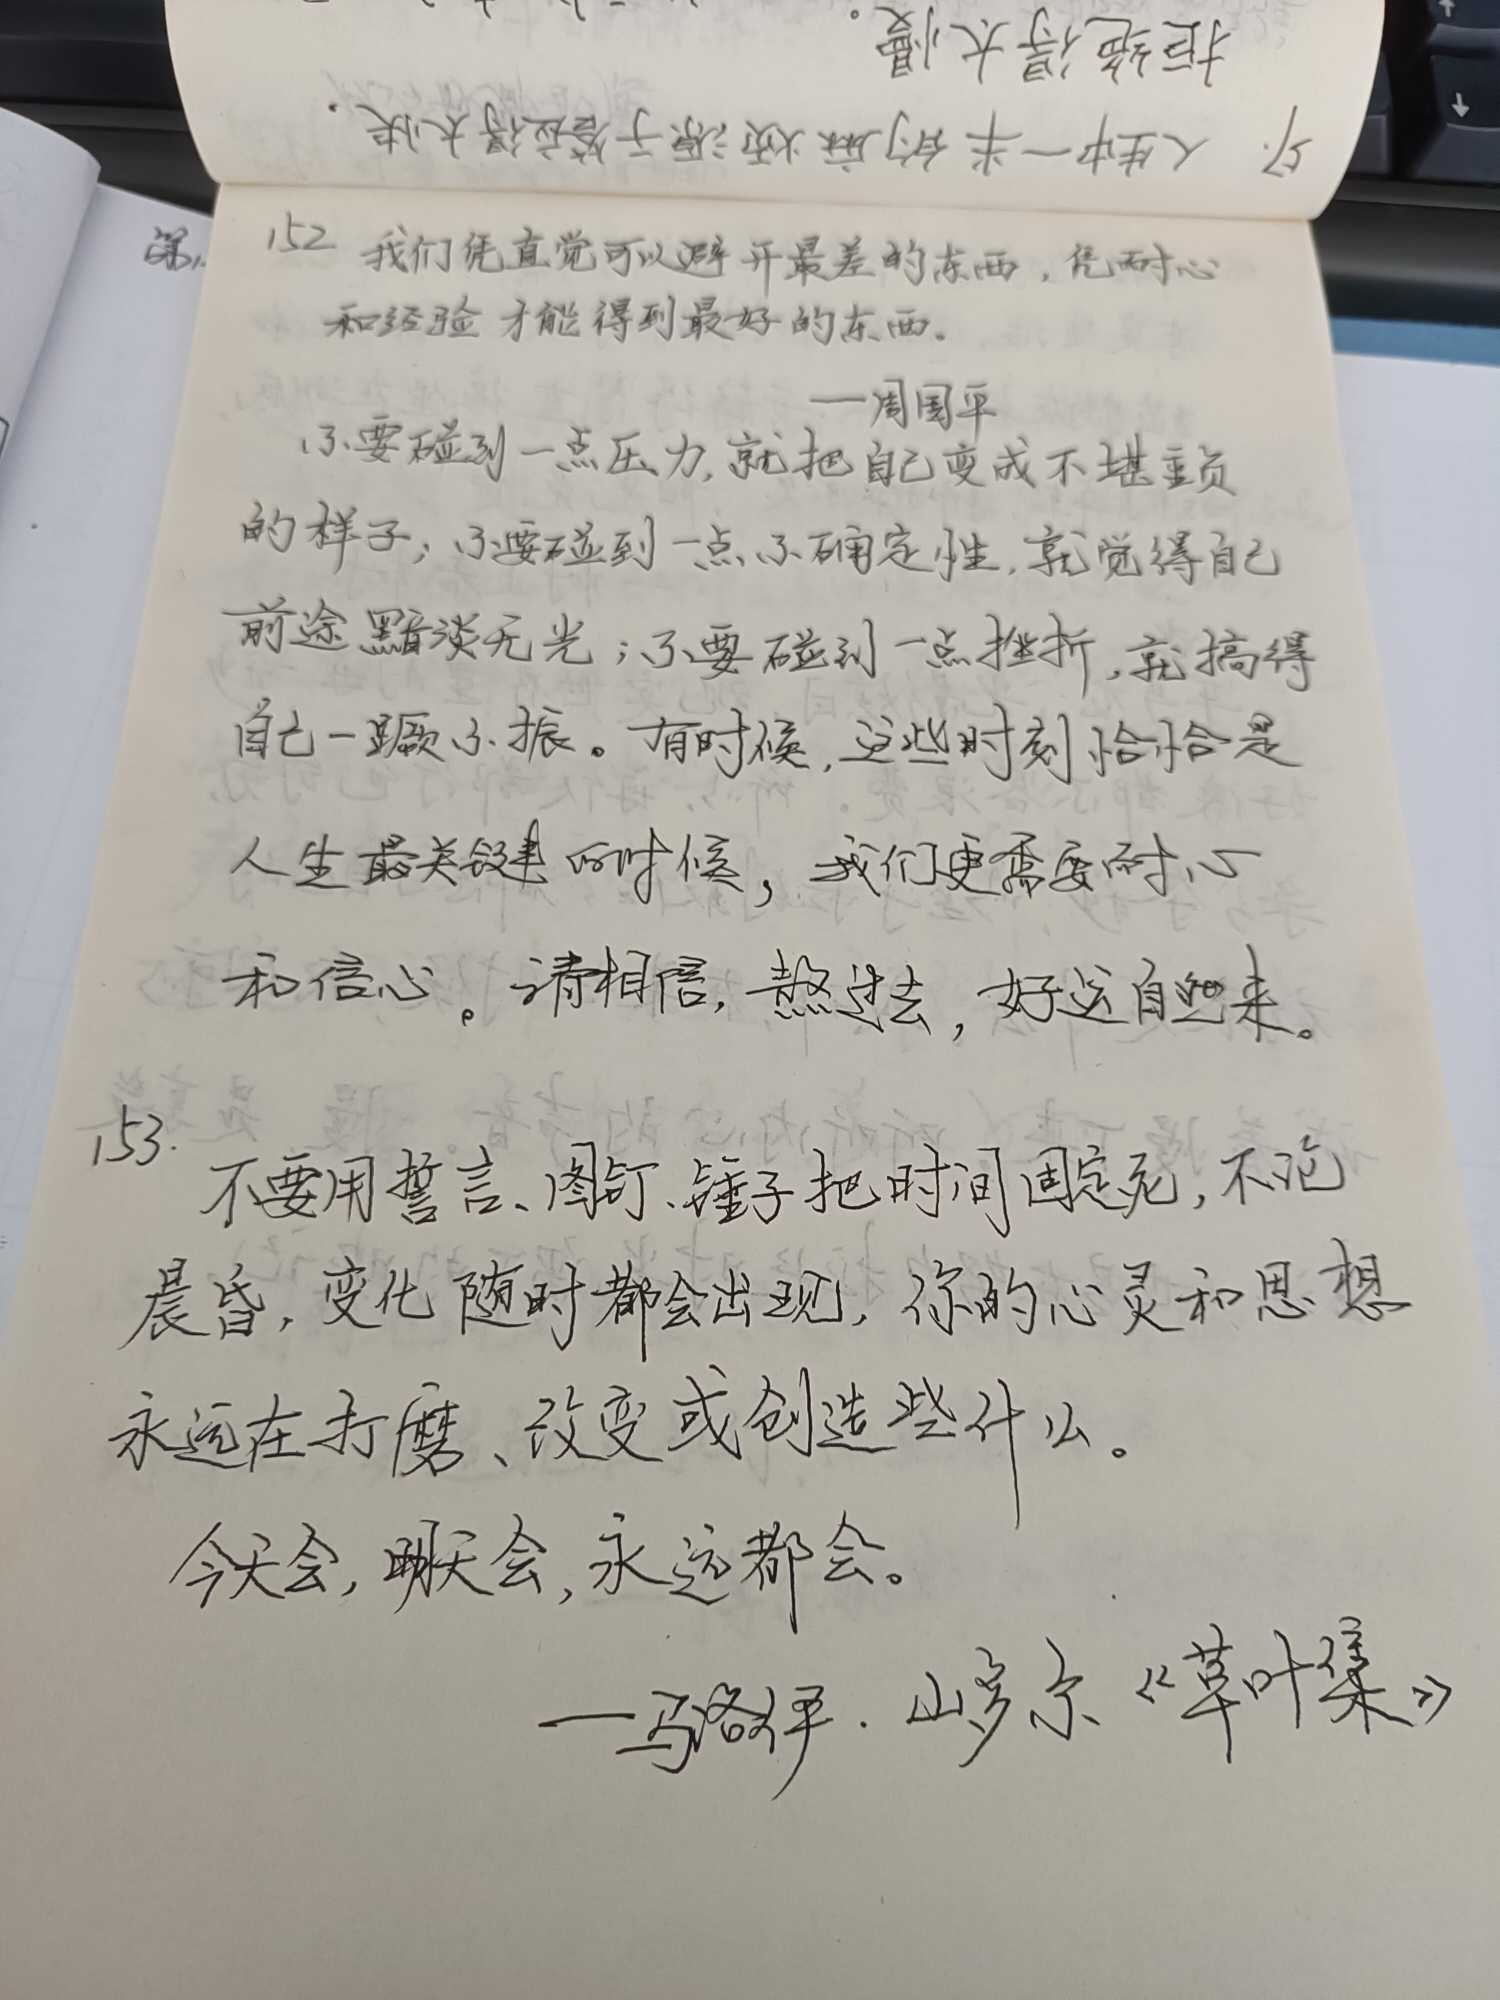 人生中一半的麻烦源于答应得太快,
拒绝得太慢。
152 我们凭直觉可以避开最差的东西，凭耐心
和经验才能得到最好的东西。
——周国平
不要碰到一点压力，就把自己变成不堪重负
的样子；不要碰到一点不确定性，就觉得自己
前途黯淡无光；不要碰到一点挫折，就搞得
自己一蹶不振。有时候，这些时刻恰恰是
人生最关键的时候，我们更需要耐心
和信心。请相信，熬过去，好运自然来。
153.
不要用誓言、图钉、锤子把时间固定死，不论
晨昏，变化随时都会出现，你的心灵和思想
永远在打磨、改变或创造些什么。
今天会，明天会，永远都会。
——马洛伊·山多尔《草叶集》